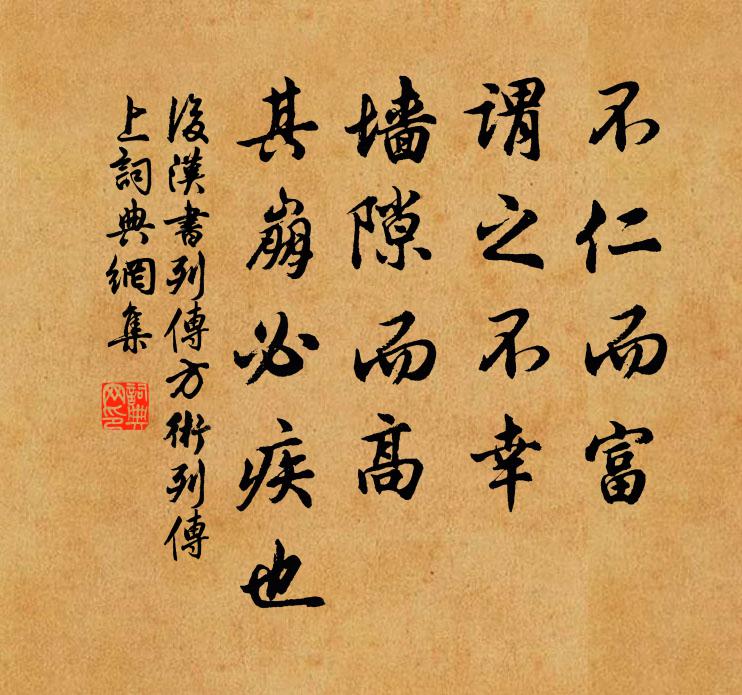 不仁而富
谓之不幸
墙隙而高
其崩必疾也
後漢書列傳方術列傳
上詞典網集
詞典
网印